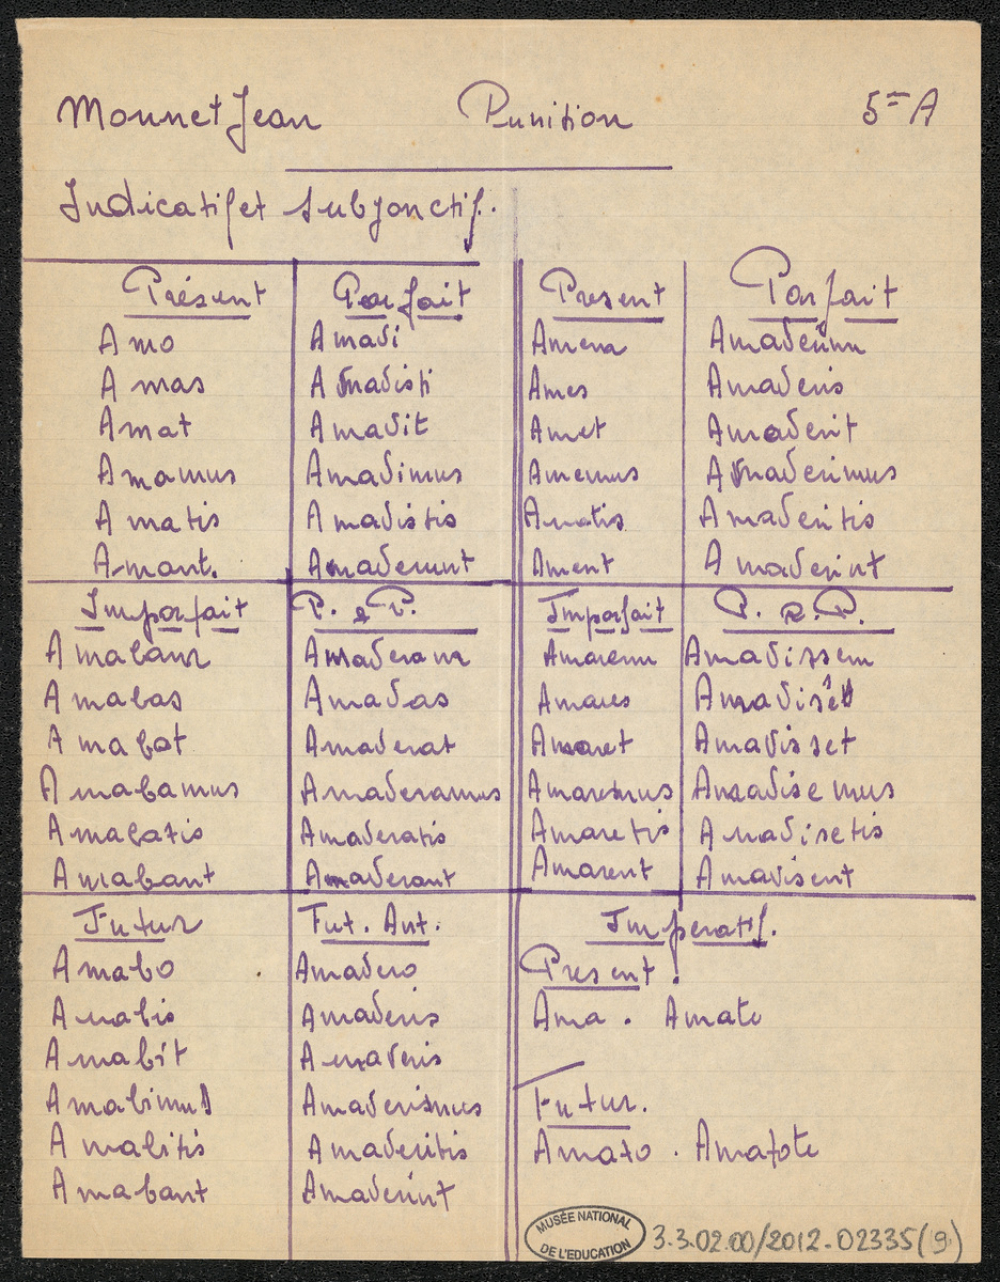 Monnet Jean Punition 5e A
Indicatif et Subjonctif.
Présent Parfait Present Parfait
Amo Amavi Amem Amaverim
Amas Amavisti Ames Amaveris
Amat Amavit Amet Amaverit
Amamus Amavimus Amemus Amaverimus
Amatis Amavistis Ametis Amaveritis
Amant. Amaverunt Ament Amaverint
Imparfait P. q P. Imparfait P. q. P.
Amabam Amaveram Amarem Amavissem
Amabas Amavas Amares
Amabat Amaverat Amaret Amavisset
Amabamus Amaveramus Amaremus Amavisemus
Amabatis Amaveratis Amaretis Amavisetis
Amabant Amaverant Amarent Amavisent
Futur Fut. Ant. Imperatif.
Amabo Amavero Present
Amabis Amaveris Ama . Amate
Amabit Amaveris
Amabimus Amaverimus Futur.
Amabitis Amaveritis Amato . Amatote
Amabant Amaverint
MUSÉE NATIONAL
DE L'EDUCATION
3.3.02.00/2012-02335(9)